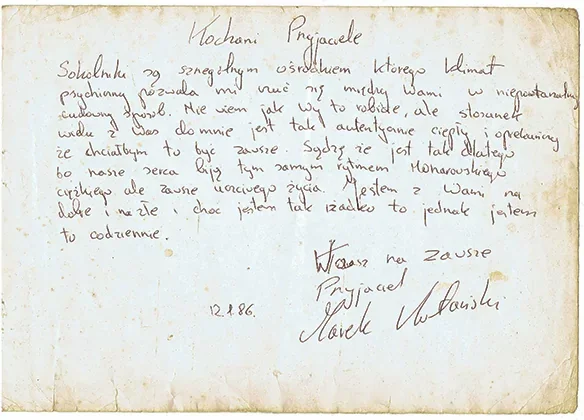 Kochani Przyjaciele
Sokolniki są szczególnym ośrodkiem którego klimat
psychiczny pozwala mi czuć się między Wami w niepowtarzalny
cudowny sposób. Nie wiem jak Wy to robicie, ale stosunek
wielu z Was do mnie jest tak autentycznie ciepły i opiekuńczy
że chciałbym tu być zawsze. Sądzę że jest tak dlatego
bo nasze serca biją tym samym rytmem Monarowskiego
ciężkiego ale zawsze uczciwego życia. Jestem z Wami na
dobre i na złe i choć jestem tak rzadko to jednak jestem
tu codziennie.
Wasz na zawsze
Przyjaciel
12.1.86.
Marek Kotański